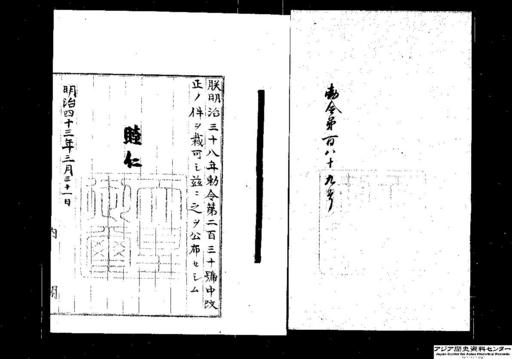 勅令第百八十九号
朕明治三十八年勅令第二百三十號中改
正ノ件ヲ裁可シ茲ニ之ヲ公布セシム
睦仁
天皇御璽
明治四十三年三月三十一日
内閣
アジア歴史資料センター
Japan Center for Asian Historical Records